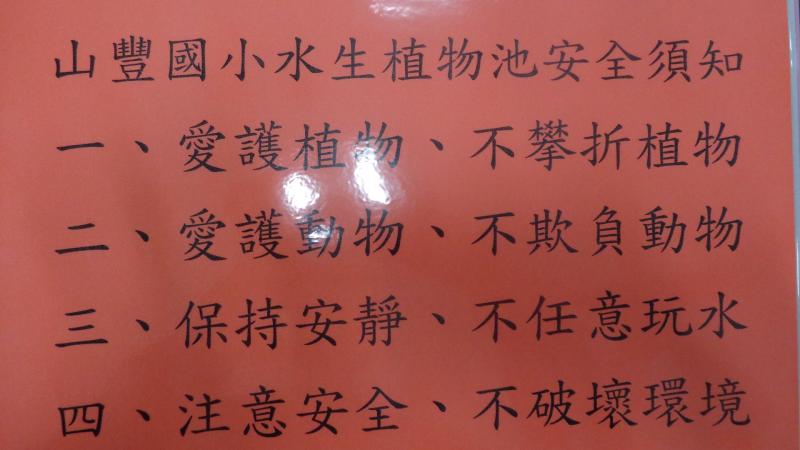 山豐國小水生植物池安全須知
一、愛護植物、不攀折植物
二、愛護動物、不欺負動物
三、保持安靜、不任意玩水
四、注意安全、不破壞環境